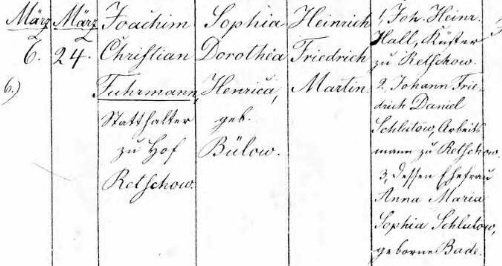 März März Joachim Sophia Heinrich 1, Joh. Heinr.
6. 24. Christian Dorothia Friedrich Hall, Küster
6.) Fuhrmann, Henrica, Martin zu Retschow.
Statthalter geb. 2. Johann Frie-
zu Hof Bülow. drich Daniel
Retschow. Schlutow, Arbeits
mann zu Retschow.
3, dessen Ehefrau
Anna Maria
Sophia Schlutow,
geborne Bade.